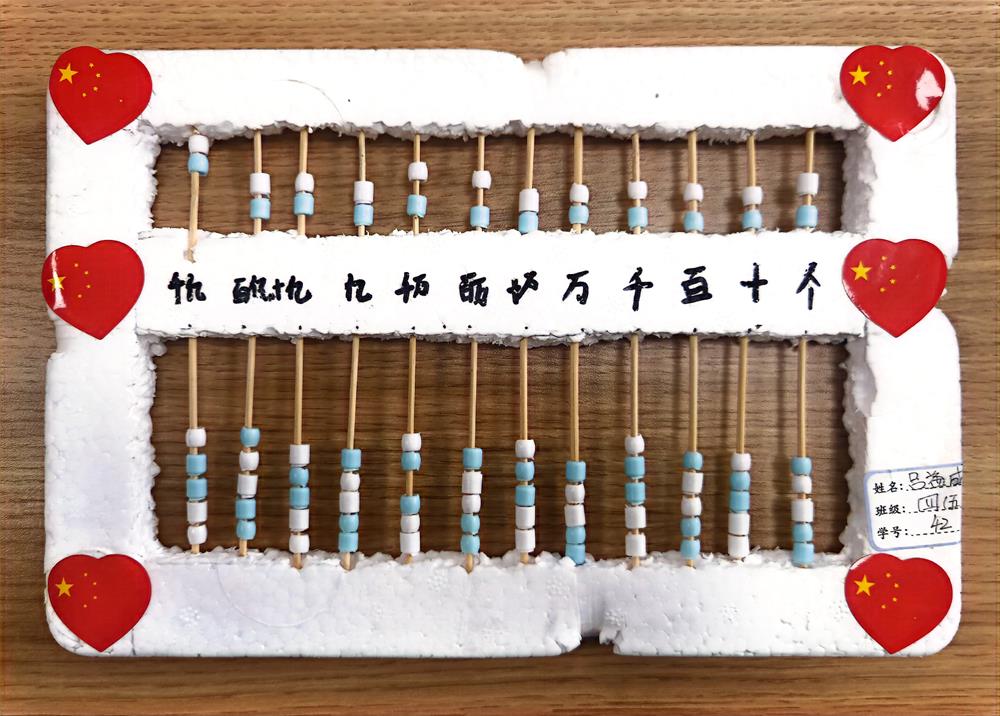 千亿 百亿 十亿 亿 千万 百万 十万 万 千 百 十 个
姓名:吕海
班级:四伍
学号:42